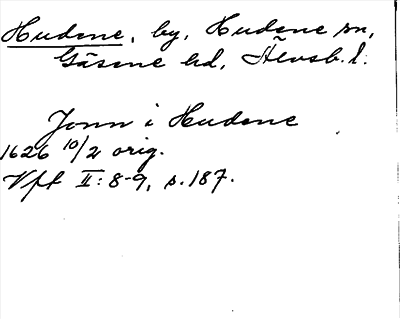 Hudene, by, Hudene sn,
Gäsene hd, Älvsb. l.
Jonn i Hudene
1626 10/2 orig.
Vft II: 8-9, s. 187.